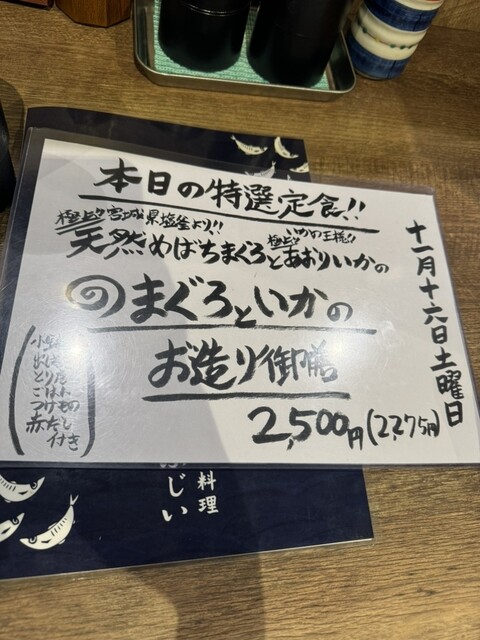 本日の特選定食!!
十一月十六日土曜日
極上!! 宮城県塩釜より!!
極上!! いかの王様!!
天然めばちまぐろとあおりいかの
まぐろといかの
お造り御膳
2,500円(2,275円)
とりだ
ごはん
つけもの
赤だし
付き
料理
じい